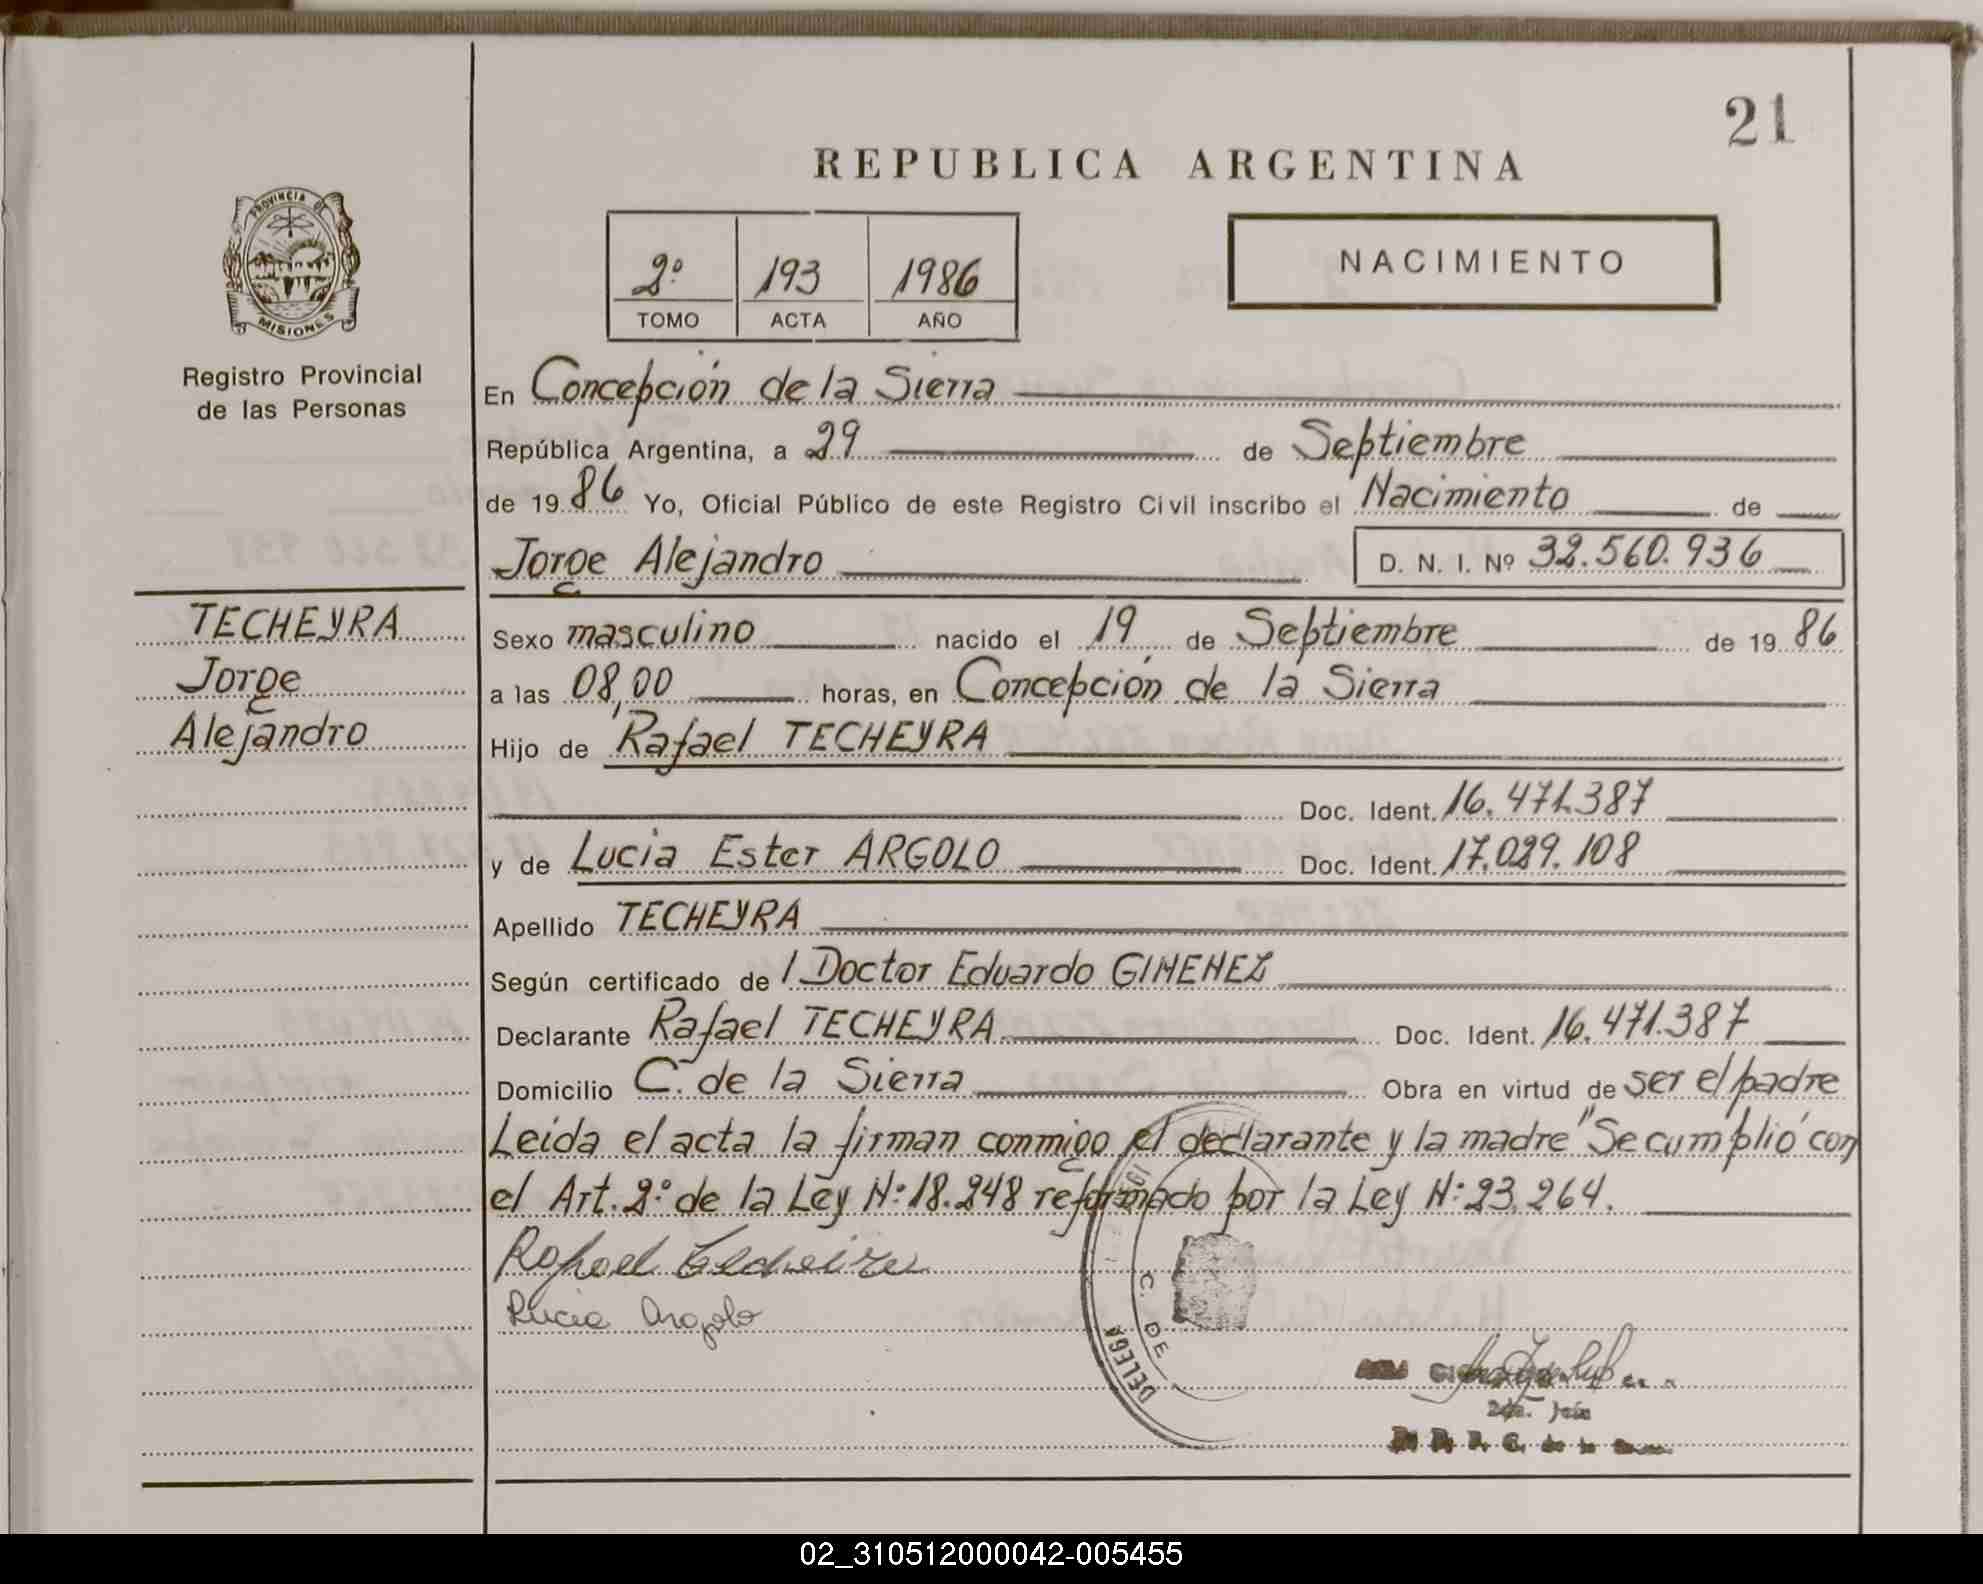 21
REPUBLICA ARGENTINA
PROVINCIA DE
MISIONES
Registro Provincial
de las Personas
2º 193 1986
TOMO ACTA AÑO
NACIMIENTO
En Concepción de la Sierra
República Argentina, a 29 de Septiembre
de 1986 Yo, Oficial Público de este Registro Civil inscribo el Nacimiento de
Jorge Alejandro D. N. I. Nº 32.560.936
TECHEYRA
Jorge
Alejandro
Sexo masculino nacido el 19 de Septiembre de 1986
a las 08,00 horas, en Concepción de la Sierra
Hijo de Rafael TECHEYRA
Doc. Ident. 16.471.387
y de Lucia Ester ARGOLO Doc. Ident. 17.029.108
Apellido TECHEYRA
Según certificado de / Doctor Eduardo GIMENEZ
Declarante Rafael TECHEYRA Doc. Ident. 16.471.387
Domicilio C. de la Sierra Obra en virtud de ser el padre
Leída el acta la firman conmigo el declarante y la madre "Se cumplió con
el Art. 2º de la Ley N: 18.248 reformado por la Ley N: 23.264.
Rafael Techeira
Lucia Argolo
DELEGA
C. DE
2da. Jefe
C. de la
02_310512000042-005455